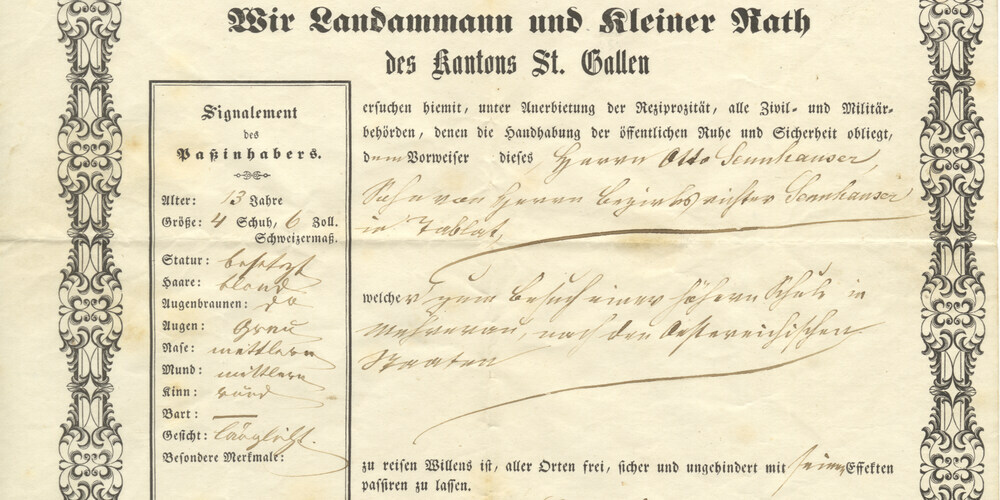 Wir Landammann und Kleiner Rath
des Kantons St. Gallen
Signalement
des
Paßinhabers.
Alter: 13 Jahre
Größe: 4 Schuh, 6 Zoll.
Schweizermaß.
Statur: besetzt
Haare: blond
Augenbraunen: do
Augen: Grau
Nase: mittlern
Mund: mittlern
Kinn: rund
Bart: —
Gesicht: länglicht.
Besondere Merkmale:
ersuchen hiemit, unter Anerbietung der Reziprozität, alle Zivil- und Militär-
behörden, denen die Handhabung der öffentlichen Ruhe und Sicherheit obliegt,
dem Vorweiser dieses Herrn Otto Sennhauser,
Sohn von Herrn Bezirksrichter Sennhauser
in Tablat,
welcher zum Besuch einer höhern Schule in
Mehrerau, nach den Oesterreichischen
Staaten
zu reisen Willens ist, aller Orten frei, sicher und ungehindert mit seinen Effekten
passiren zu lassen.